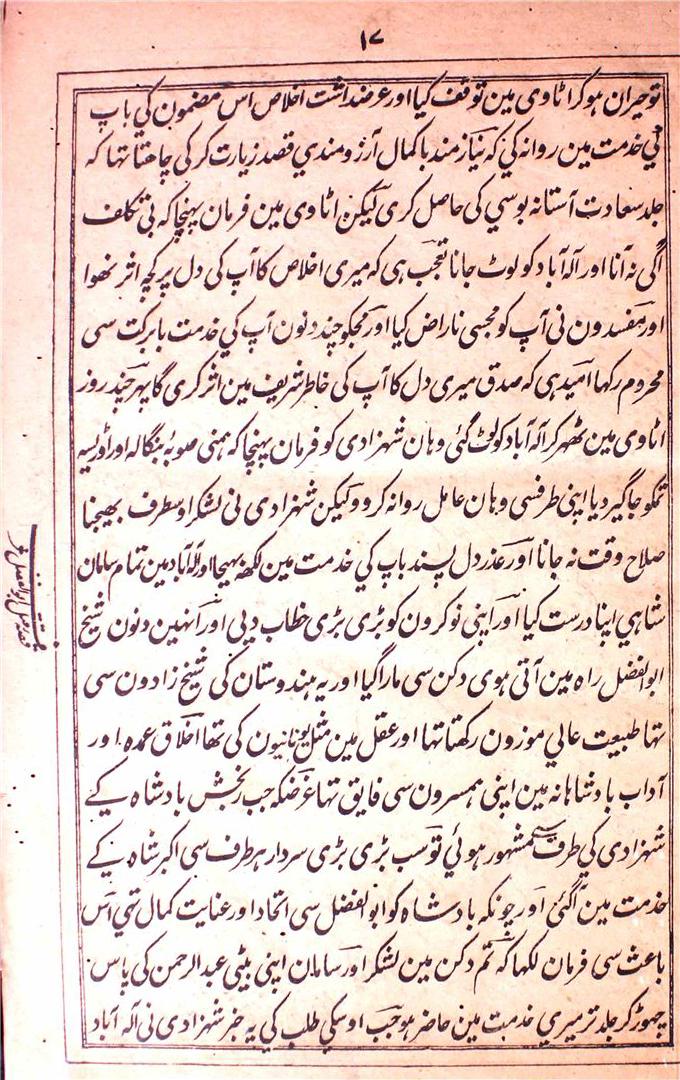 ۱۷
تو حیران ہو کر اٹاوی مین توقف کیا اور عرضداشت اخلاص اس مضمون کی باپ
کی خدمت مین روانہ کی کہ نیازمند باکمال آرزومندی قصد زیارت کر کی چاھتا تہا کہ
جلد سعادت آستانہ بوسی کی حاصل کری لیکن اٹاوی مین فرمان پہنچا کہ بی تکلف
آگی نہ آنا اور آلہ آباد کو لوٹ جانا تعجب ہی کہ میری اخلاص کا آپ کی دل پر کچہ اثر نہوا
اور مفسدون نی آپ کو مجسی ناراض کیا اور مجکو چند دنون آپ کی خدمت بابرکت سی
محروم رکہا امید ہی کہ صدق میری دل کا آپ کی خاطر شریف مین اثر کری گا پہر چند روز
اٹاوی مین ٹھر کر آلہ آباد کو لوٹ گئی وہان شہزادی کو فرمان پہنچا کہ ہمنی صوبۂ بنگالہ اور اوڑیسہ
تمکو جاگیر دیا اپنی طرفسی وہان عامل روانہ کرو ولیکن شہزادی نی لشکر اوسطرف بھیجنا
صلاح وقت نہ جانا اور عذر دل پسند باپ کی خدمت مین لکھہ بھیجا اور آلہ آباد مین تمام سامان
شاہی اپنا درست کیا اور اپنی نوکرون کو بڑی بڑی خطاب دیی اور انہین دنون شیخ
ابوالفضل راہ مین آتی ہوی دکن سی مارا گیا اور یہ ہندوستان کی شیخ زادون سی
تہا طبیعت عالی موزون رکھتا تہا اور عقل مین مثل یونانیون کی تھا اخلاق عمدہ اور
آداب بادشاہانہ مین اپنی ہمسرون سی فایق تہا غرضکہ جب رنجش بادشاہ کے
شہزادی کی طرف سی مشہور ہوئی تو سب بڑی بڑی سردار ہر طرف سی اکبر شاہ کے
خدمت مین آگئی اور چونکہ بادشاہ کو ابوالفضل سی اتحاد اور عنایت کمال تہی اس
باعث سی فرمان لکہا کہ تم دکن مین لشکر اور سامان اپنی بیٹی عبدالرحمن کی پاس
چھوڑ کر جلد تر میری خدمت مین حاضر ہو جب اوسکی طلب کی یہ خبر شہزادی نی آلہ آباد